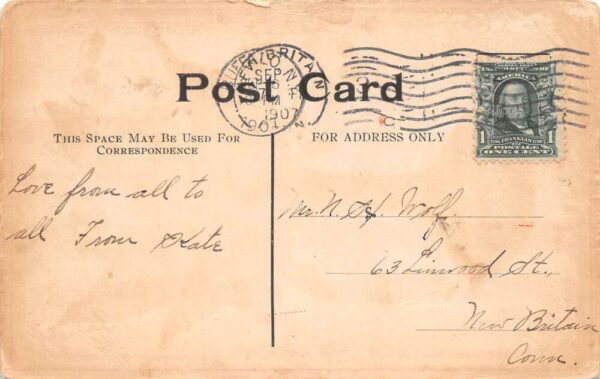 Post Card
THIS SPACE MAY BE USED FOR
CORRESPONDENCE
FOR ADDRESS ONLY
BRITAIN
SEP
1907
1907
AMERICA
1 FRANKLIN 1
POSTAGE
ONE CENT
Love from all to
all From Kate
Mr. N. H. Wolf.
63 Linwood St.,
New Britain
Conn.